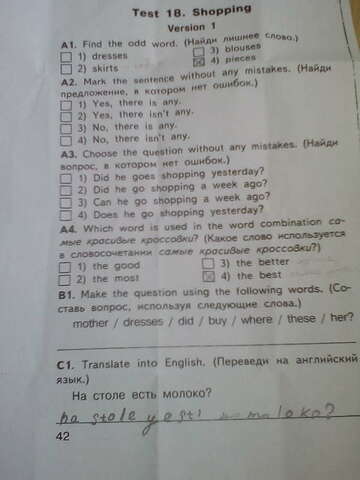 Test 18. Shopping
Version 1
A1. Find the odd word. (Найди лишнее слово.)
1) dresses 3) blouses
2) skirts 4) pieces
A2. Mark the sentence without any mistakes. (Найди
предложение, в котором нет ошибок.)
1) Yes, there is any.
2) Yes, there isn't any.
3) No, there is any.
4) No, there isn't any.
A3. Choose the question without any mistakes. (Найди
вопрос, в котором нет ошибок.)
1) Did he goes shopping yesterday?
2) Did he go shopping a week ago?
3) Can he go shopping a week ago?
4) Does he go shopping yesterday?
A4. Which word is used in the word combination са-
мые красивые кроссовки? (Какое слово используется
в словосочетании самые красивые кроссовки?)
1) the good 3) the better
2) the most 4) the best
B1. Make the question using the following words. (Со-
ставь вопрос, используя следующие слова.)
mother / dresses / did / buy / where / these / her?
C1. Translate into English. (Переведи на английский
язык.)
На столе есть молоко?
na stole yesti moloko?
42